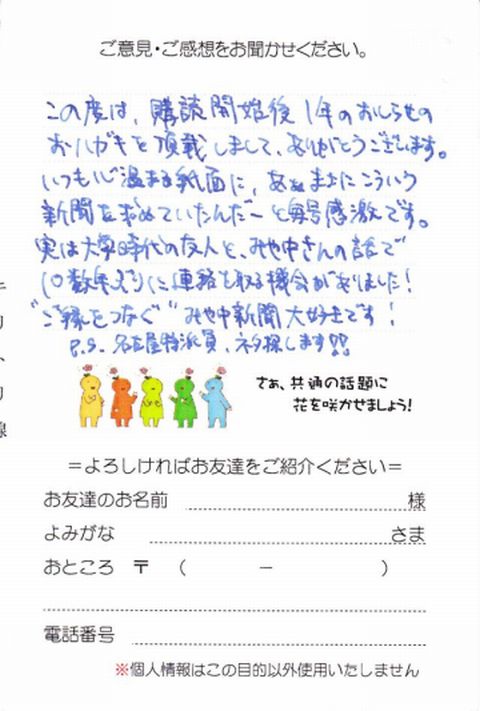 ご意見・ご感想をお聞かせください。
この度は、購読開始後1年のおしらせの
おハガキを頂戴しまして、ありがとうございます。
いつも心温まる紙面に、あぁまさにこういう
新聞を求めていたんだーと毎号感激です。
実は大学時代の友人と、みや中さんの話で
10数年ぶりに連絡を取る機会がありました!
"ご縁をつなぐ" みや中新聞大好きです!
P.S. 名古屋特派員、ネタ探します!!
さぁ、共通の話題に
花を咲かせましょう!
=よろしければお友達をご紹介ください=
お友達のお名前 様
よみがな さま
おところ 〒 ( − )
電話番号
※個人情報はこの目的以外使用いたしません
キ
リ
ト
リ
線